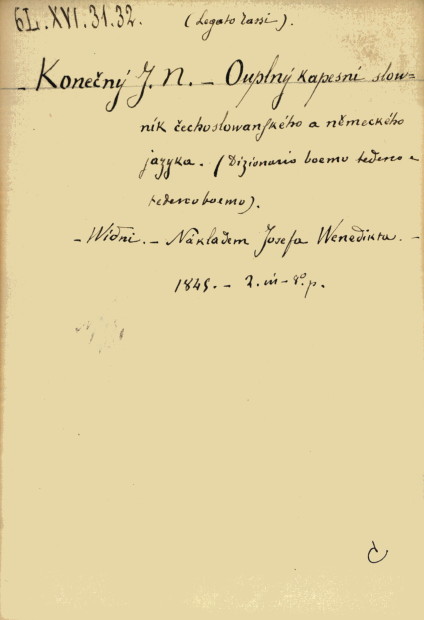 6L.XVI.31.32. (Legato Tassi).
- Konečný J. N. - Ouplný kapesní slow=
ník čechoslowanſkého a německého
jazyka. (Dizionario boemo tedesco e
tedesco boemo).
- Wídni. - Nákladem Josefa Wenedikta. -
1845. - 2. in - 8º p.
č